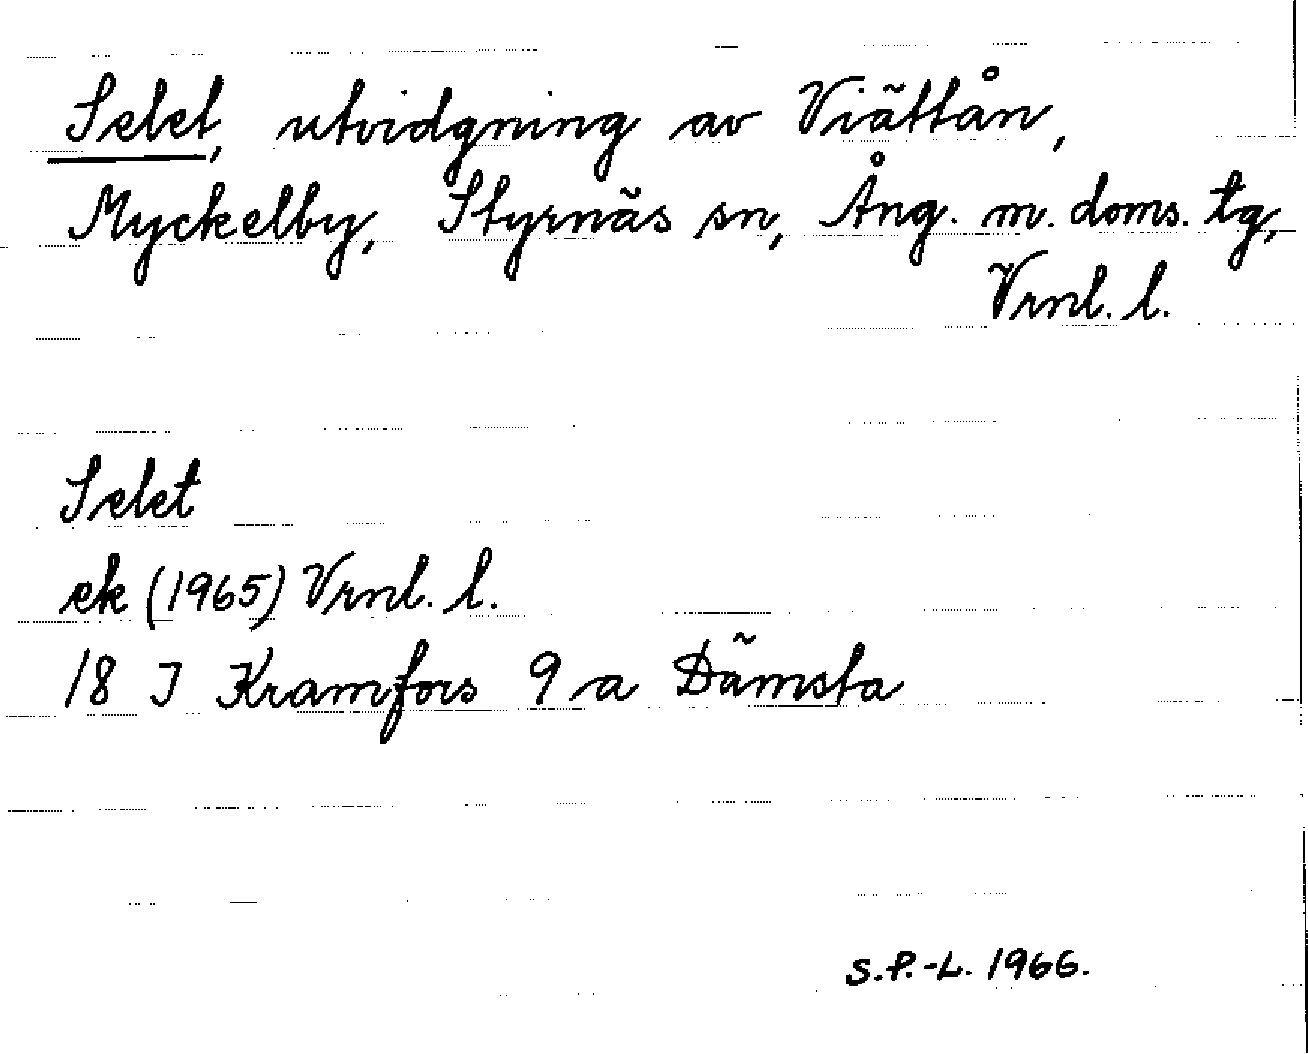 Selet, utvidgning av Viättån,
Myckelby, Styrnäs sn, Ång. m. doms. tg,
Vrnl. l.
Selet
ek (1965) Vrnl. l.
18 I Kramfors 9 a Dämsta
S.P.-L. 1966.